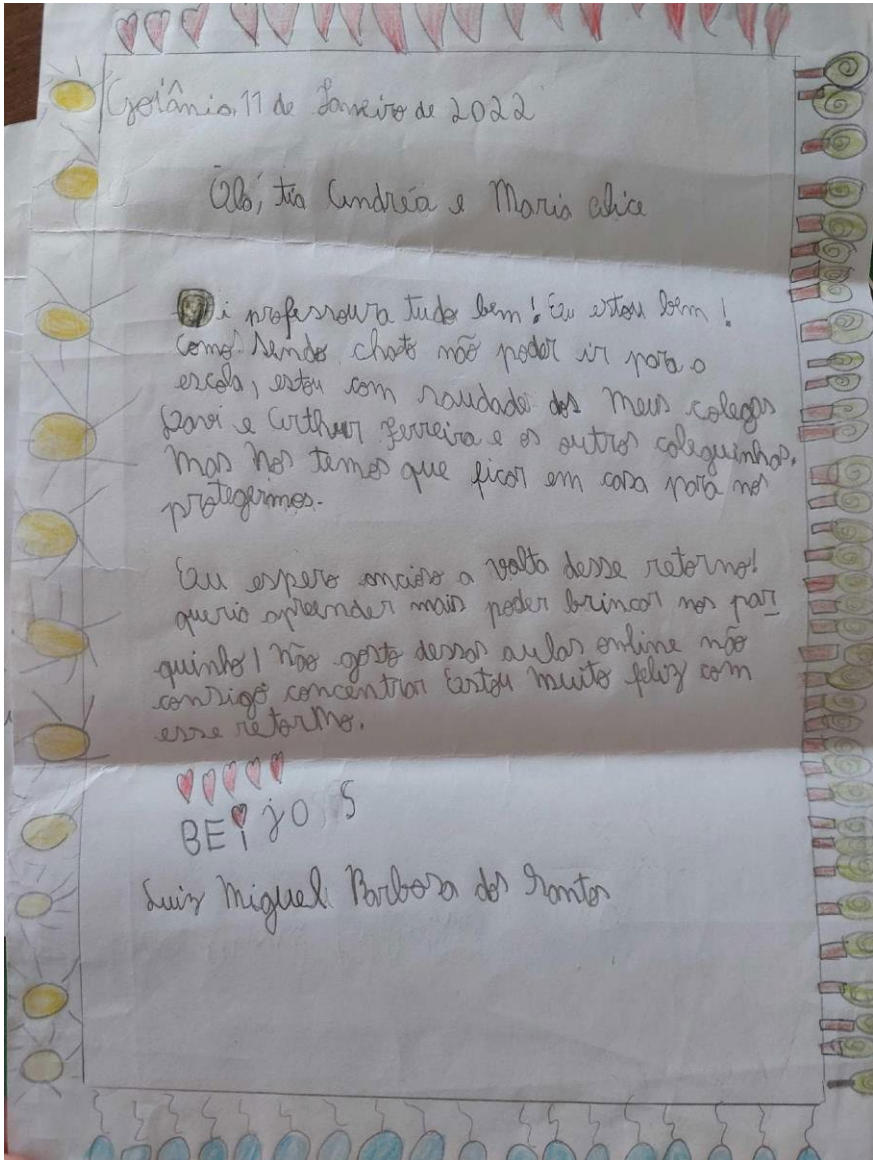 Goiânia, 11 de Janeiro de 2022
Olá, tia Andréa e Maria alice
Oi professoura tudo bem! Eu estou bem!
como sendo chato não poder ir para o
escola, estou com saudade dos meus colegas
Davi e Arthur ferreira e os outros coleguinhas.
Mas nos temos que ficar em casa para nos
protegermos.
Eu espero oncioso a volta desse retorno!
queria apreender mais poder brincar nos par
quinho! Não gosto dessas aulas online não
consigo concentrar Estou muito feliz com
esse retorno.
BEijOS
Luiz Miguel Barbosa dos Santos